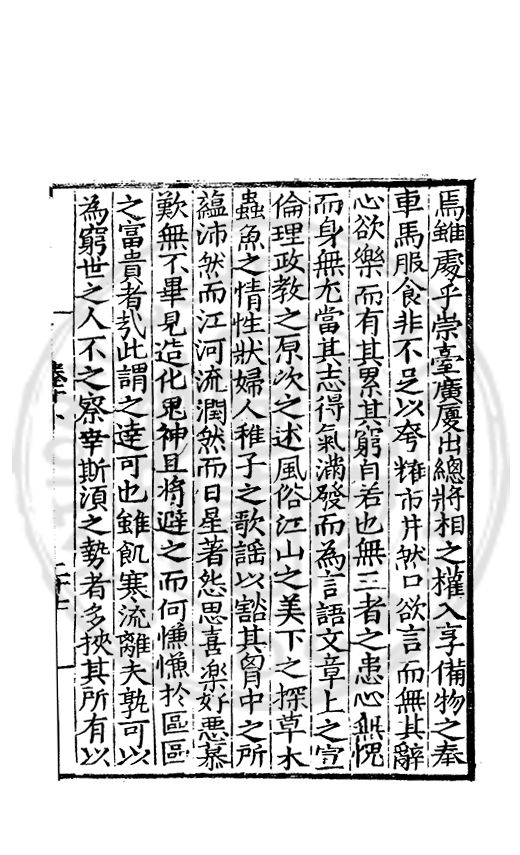 焉雖處乎崇臺廣廈出總將相之權入享備物之奉
車馬服食非不足以夸耀市井然口欲言而無其辭
心欲樂而有其累其窮自若也無三者之患心無愧
而身無尤當其志得氣滿發而為言語文章上之宣
倫理政教之原次之述風俗江山之美下之探草木
蟲魚之情性狀婦人稚子之歌謠以豁其胷中之所
蘊沛然而江河流潤然而日星著怨思喜樂好惡慕
歎無不畢見造化鬼神且將避之而何慊慊扵區區
之富貴者㢤此謂之達可也雖飢寒流離夫孰可以
為窮世之人不之察幸斯湏之勢者多挾其所有以
卷十八